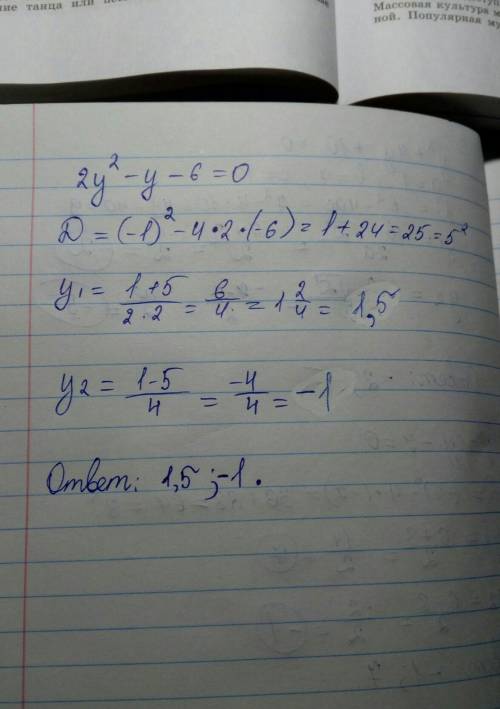 ние танца или
Массовая культура м
ной. Популярная му
2y² - y - 6 = 0
D = (-1)² - 4 • 2 • (-6) = 1 + 24 = 25 = 5²
y₁ = (1+5)/(2·2) = 6/4 = 1 2/4 = 1,5
y₂ = (1-5)/4 = -4/4 = -1
Ответ: 1,5 ; -1.